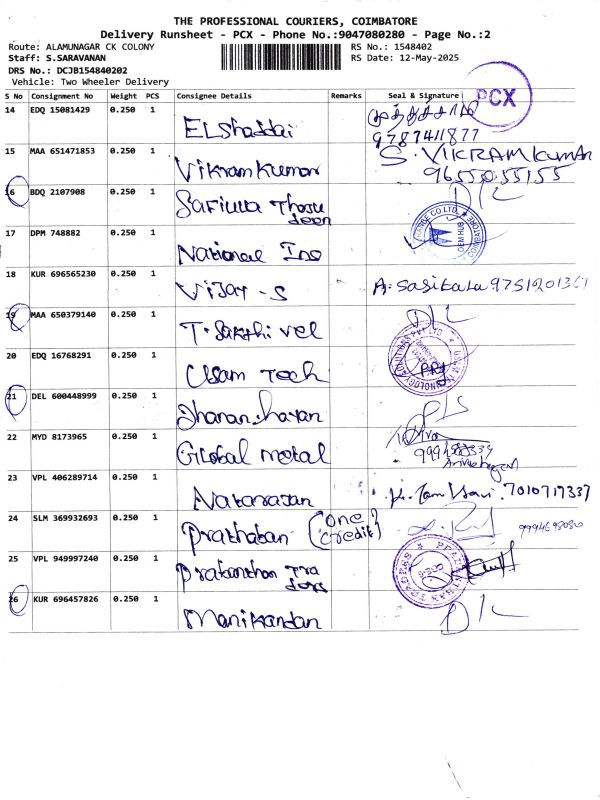 THE PROFESSIONAL COURIERS, COIMBATORE
Delivery Runsheet - PCX - Phone No.:9047080280 - Page No.:2
Route: ALAMUNAGAR CK COLONY RS No.: 1548402
Staff: S.SARAVANAN RS Date: 12-May-2025
DRS No.: DCJB154840202
Vehicle: Two Wheeler Delivery
PCX
S No Consignment No Weight PCS Consignee Details Remarks Seal & Signature
14 EDQ 15081429 0.250 1 ELShaddai
9787411877
15 MAA 651471853 0.250 1 Vikram Kumar S. VIKRAM KUMAR
9655055155
16 BDQ 2107908 0.250 1
17 DPM 748882 0.250 1 National Ins
18 KUR 696565230 0.250 1 Vijay - S A. Sasikala
19 MAA 650379140 0.250 1 T. Sakthi vel
20 EDQ 16768291 0.250 1 Usam Tech
21 DEL 600448999 0.250 1 Dhananjayan
22 MYD 8173965 0.250 1 Global metal
23 VPL 406289714 0.250 1 Natarajan 7010717337
24 SLM 369932693 0.250 1 Prathaban (one credit) 9994698080
25 VPL 949997240 0.250 1
26 KUR 696457826 0.250 1 Manikandan